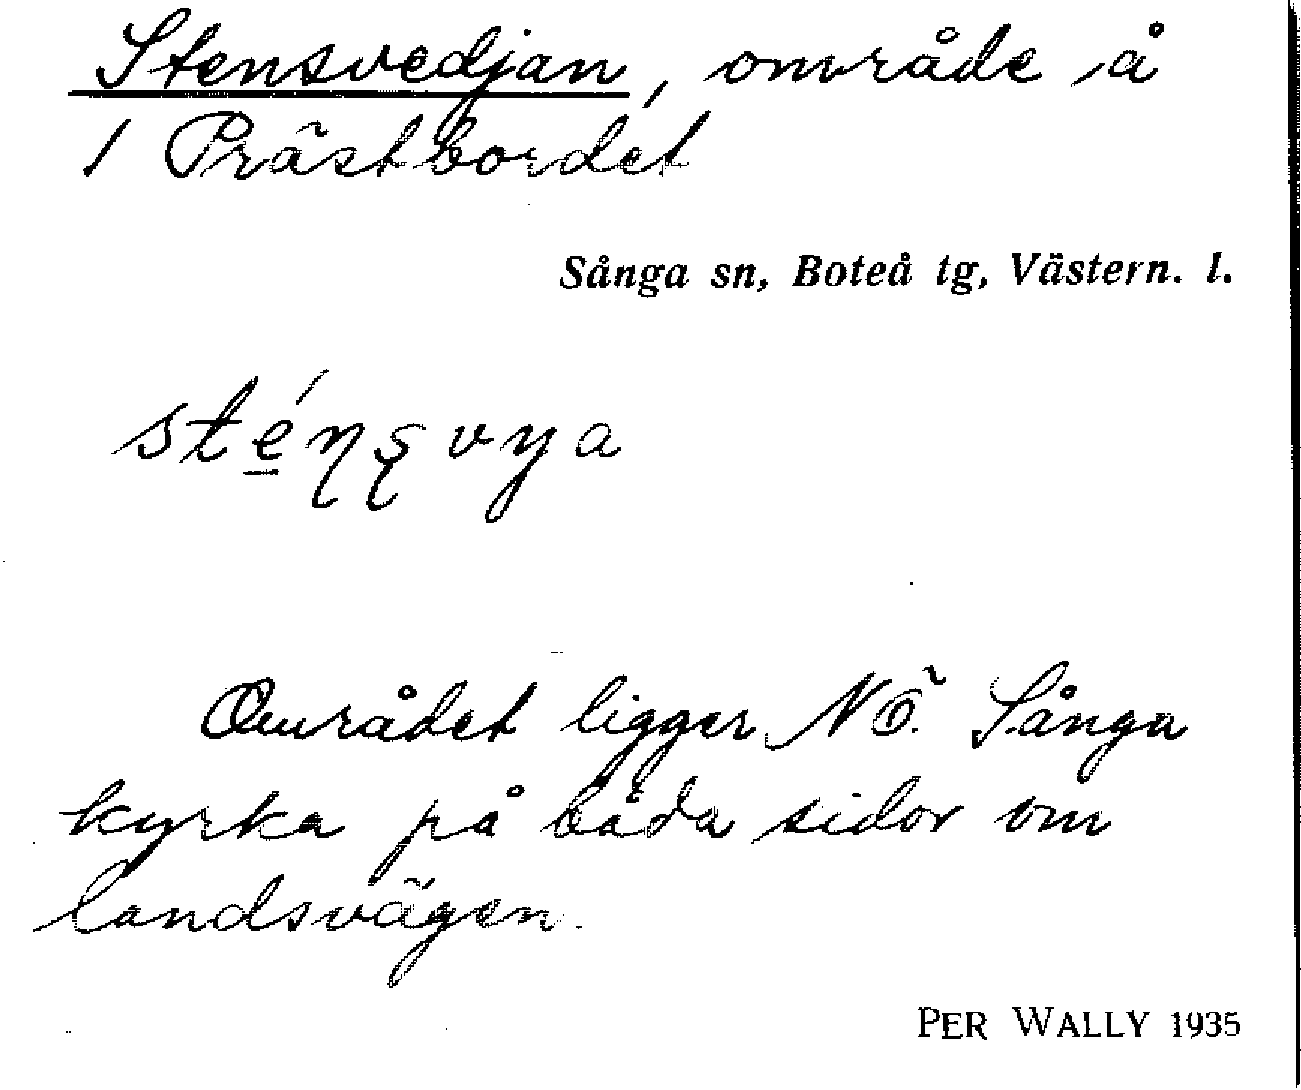 Stensvedjan, område å
1 Prästbordet
Sånga sn, Boteå tg, Västern. l.
sté̱ƞʂvya
Området ligger NÖ. Sånga
kyrka på båda sidor om
landsvägen.
PER WALLY 1935